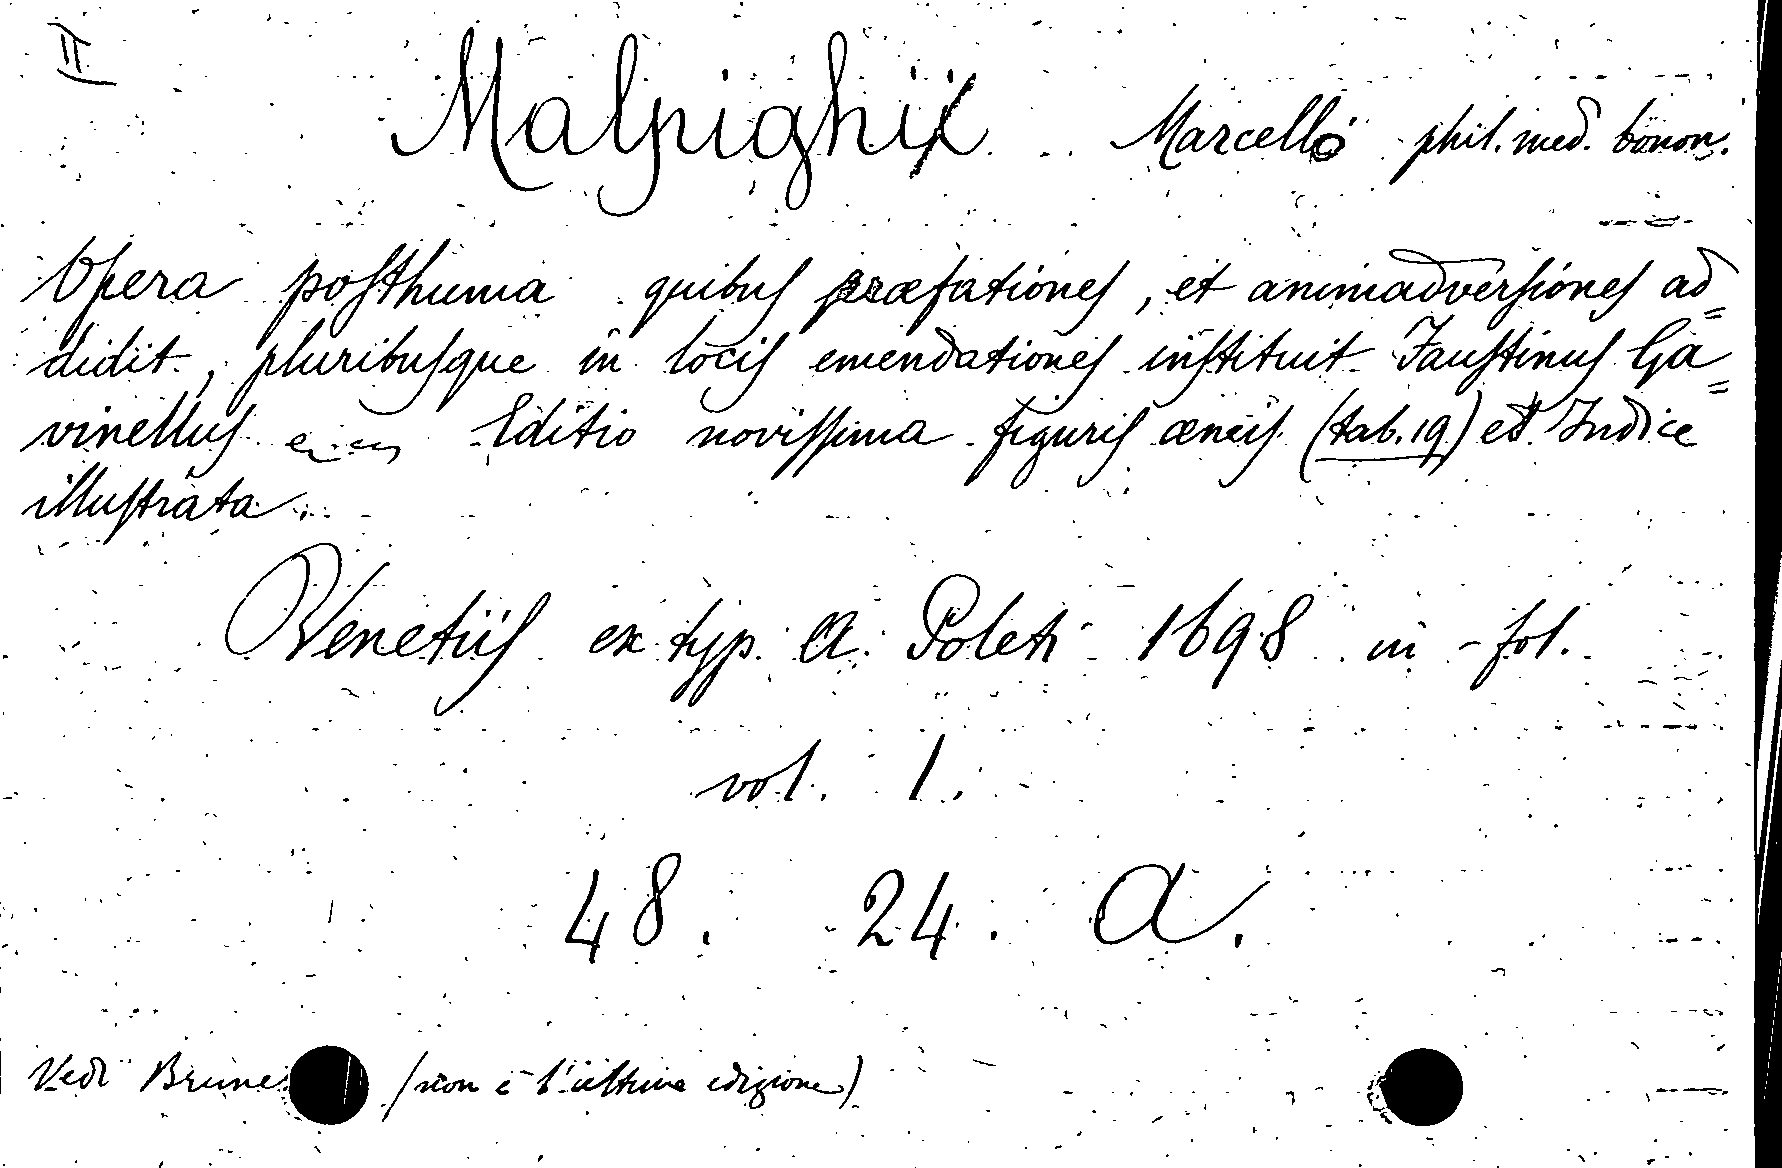 II
Malpighi Marcello phil. med. bonon.
Opera posthuma quibus præfationes, et animadversiones ad=
didit, pluribusque in locis emendationes instituit Faustinus Ga=
vinellus Editio novissima figuris æneis (tab. 19) et Indice
illustrata.
Venetiis ex typ. A. Poleti 1698 in-fol.
vol. 1.
48. 24. A.
Vedi Brune (non è l'ultima edizione)